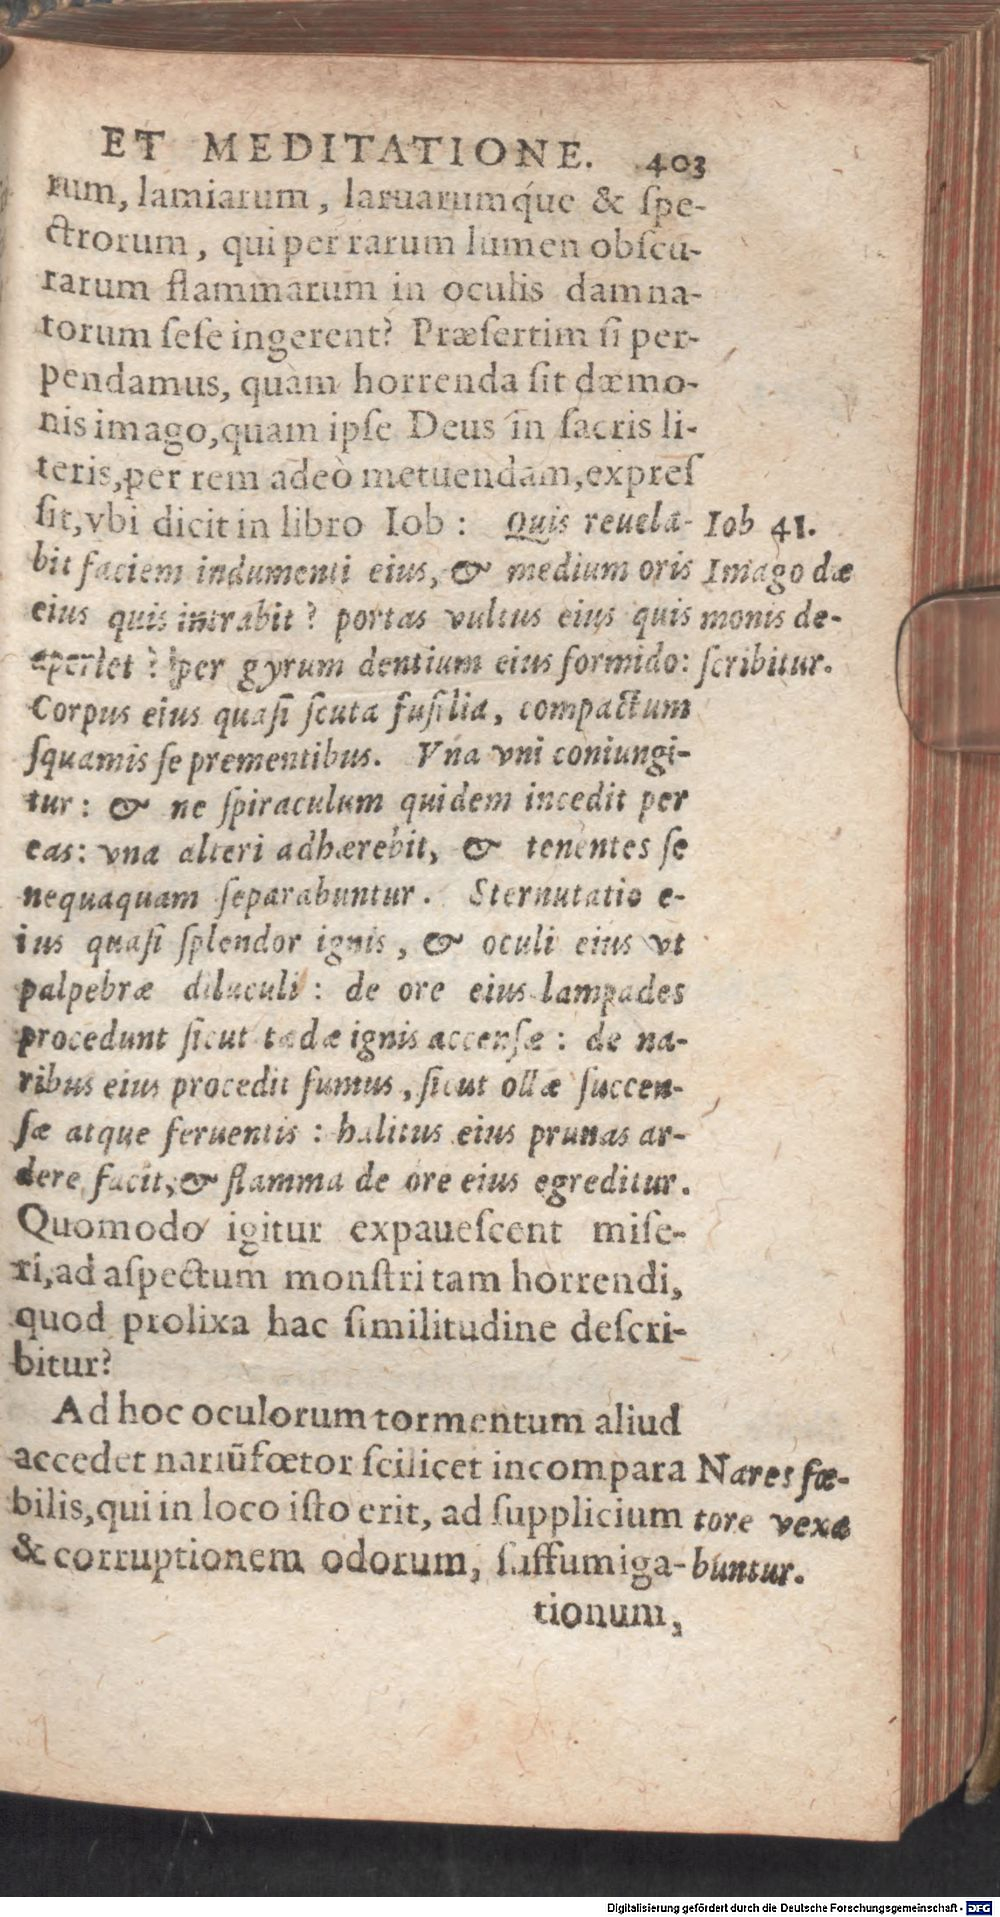 ET MEDITATIONE. 403
rum, lamiarum, laruarumq́ue & ſpe-
ctrorum, qui per rarum lumen obſcu-
rarum flammarum in oculis damna-
torum ſeſe ingerent? Præſertim ſi per-
pendamus, quàm horrenda ſit dæmo-
nis imago, quam ipſe Deus in ſacris li-
teris, per rem adeò metuendam, expreſ
ſit, vbi dicit in libro Iob: Quis reuela-
bit faciem indumenti eius, & medium oris
eius quis intrabit? portas vultus eius quis
aperiet? per gyrum dentium eius formido:
Corpus eius quaſi ſcuta fuſilia, compactum
ſquamis ſe prementibus. Vna vni coniungi-
tur: & ne ſpiraculum quidem incedit per
eas: vna alteri adhærebit, & tenentes ſe
nequaquam ſeparabuntur. Sternutatio e-
ius quaſi ſplendor ignis, & oculi eius vt
palpebræ diluculi: de ore eius lampades
procedunt ſicut tædæ ignis accenſæ: de na-
ribus eius procedit fumus, ſicut ollæ ſuccen-
ſæ atque feruentis: halitus eius prunas ar-
dere facit, & flamma de ore eius egreditur.
Quomodo igitur expaueſcent miſe-
ri, ad aſpectum monſtri tam horrendi,
quod prolixa hac ſimilitudine deſcri-
bitur?
Ad hoc oculorum tormentum aliud
accedet nariũ fœtor ſcilicet incompara
bilis, qui in loco iſto erit, ad ſupplicium
& corruptionem odorum, ſuffumiga-
tionum,
Iob 41.
Imago dæ
monis de-
ſcribitur.
Nares fœ-
tore vexa
buntur.
Digitalisierung gefördert durch die Deutsche Forschungsgemeinschaft - DFG